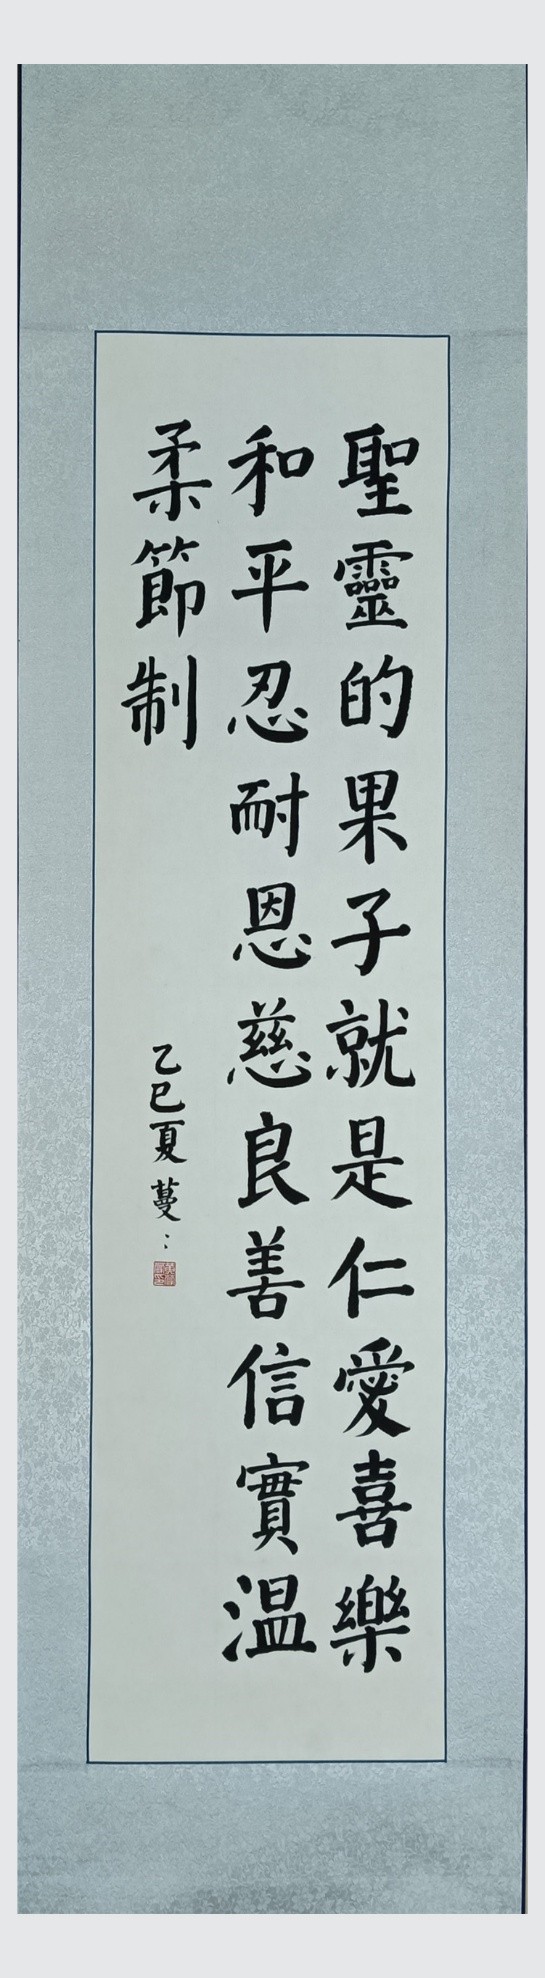 聖靈的果子就是仁愛喜樂
和平忍耐恩慈良善信實溫
柔節制
乙巳夏蔓: